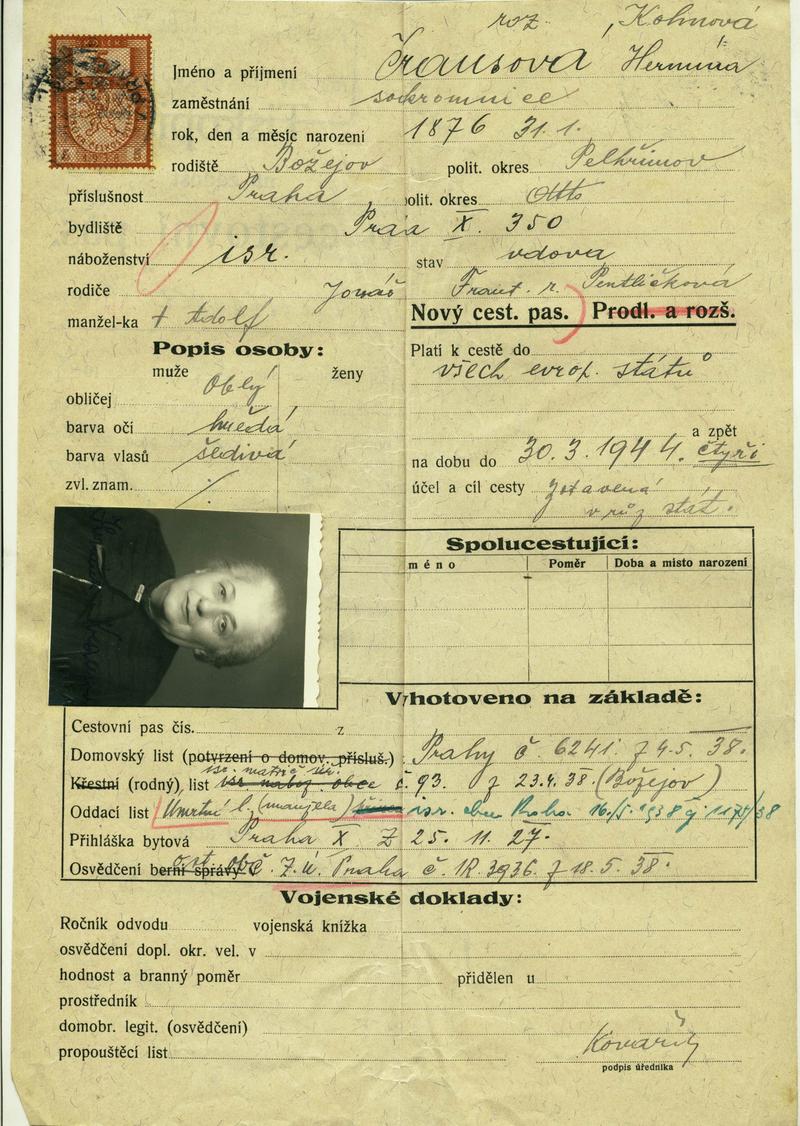 roz. Kohnová
Jméno a příjmení Krausová Hermina
zaměstnání soukromnice
rok, den a měsíc narození 1876 31.1.
rodiště Božejov polit. okres Pelhřimov
příslušnost Praha polit. okres
bydliště Praa X. 350
náboženství isr. stav vdova
rodiče Jonáš Frant. r. Pentličková
manžel-ka † Adolf Nový cest. pas. Prodl. a rozš.
Popis osoby: Platí k cestě do
muže ženy všech evrop. států
obličej oblý
barva očí hnědá a zpět
barva vlasů šedivá na dobu do 30.3.1944. čtyři
zvl. znam. / účel a cíl cesty zotavená
v růz. stát.
Spolucestující:
méno Poměr Doba a místo narození
Vyhotoveno na základě:
Cestovní pas čís. z
Domovský list (potvrzení o domov. přísluš.) Prahy č. 6241. z 4.5. 38.
isr. matrič.
Křestní (rodný) list isr. nábož. obce č. 93. z 23.4.38. (Božejov)
Oddací list Úmrtní l. (manžela) isr. obec Praha 16/5. 1938 č. 1175/38
Přihláška bytová Praha X. z 25. 11. 27.
Osvědčení berní správy č. Z.ú. Praha č. IR. 3936. z 18. 5. 38.
Vojenské doklady:
Ročník odvodu vojenská knížka
osvědčení dopl. okr. vel. v
hodnost a branný poměr přidělen u
prostředník
domobr. legit. (osvědčení)
propouštěcí list Kovařík
podpis úředníka